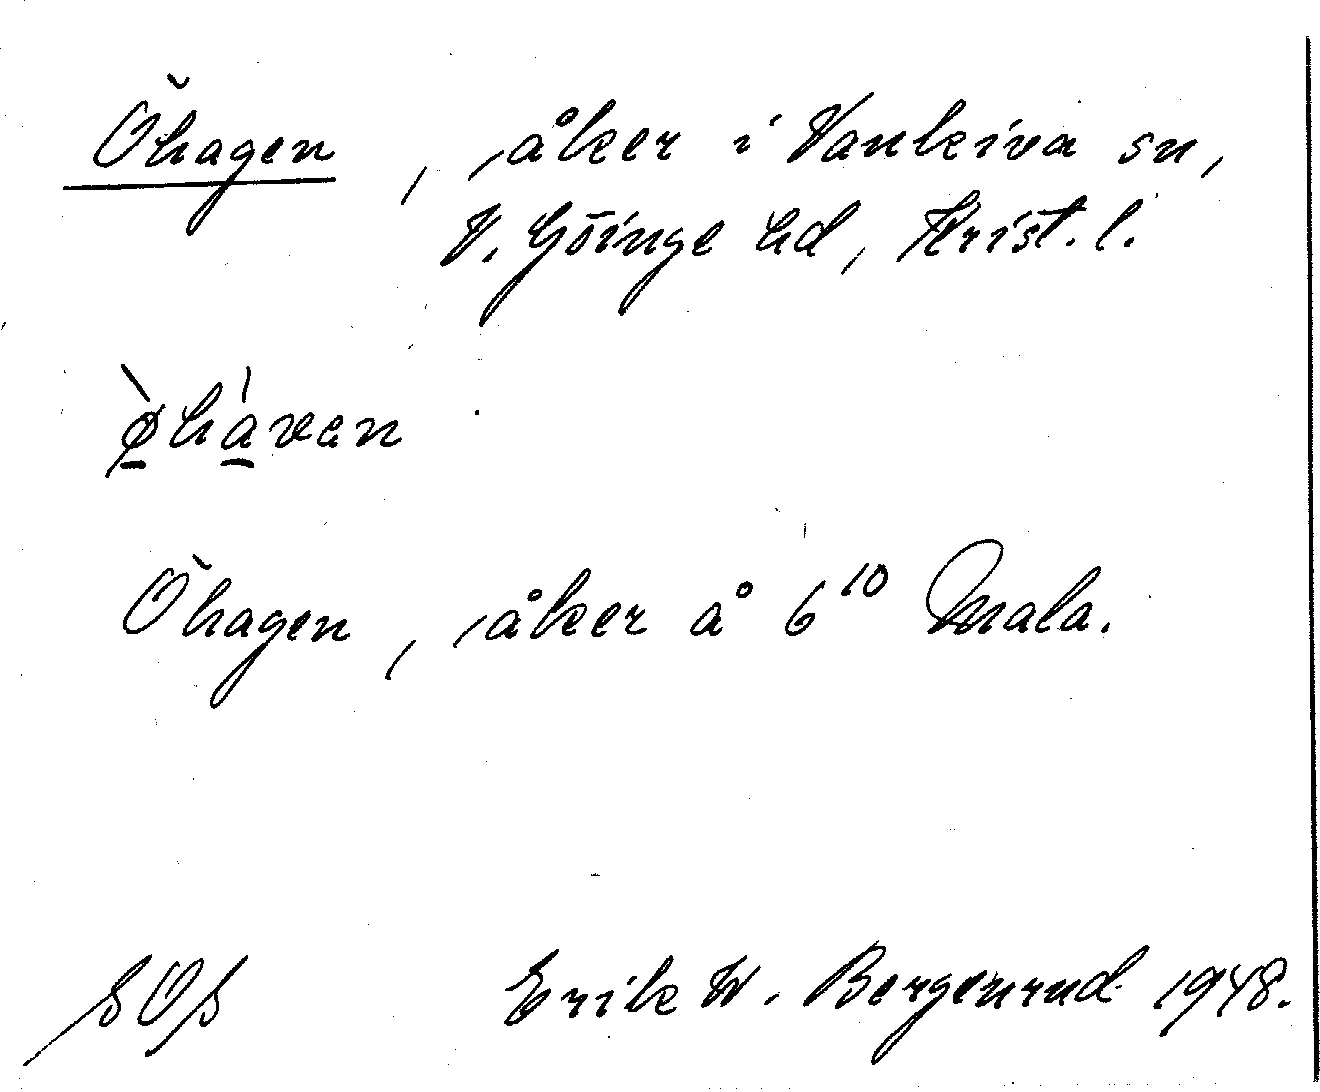 Öhagen, åker i Vankiva sn,
V. Göinge hd, Krist. l.
ø̀háven
Öhagen, åker å 6¹⁰ Mala.
SOS Erik W. Bergenrud 1948.